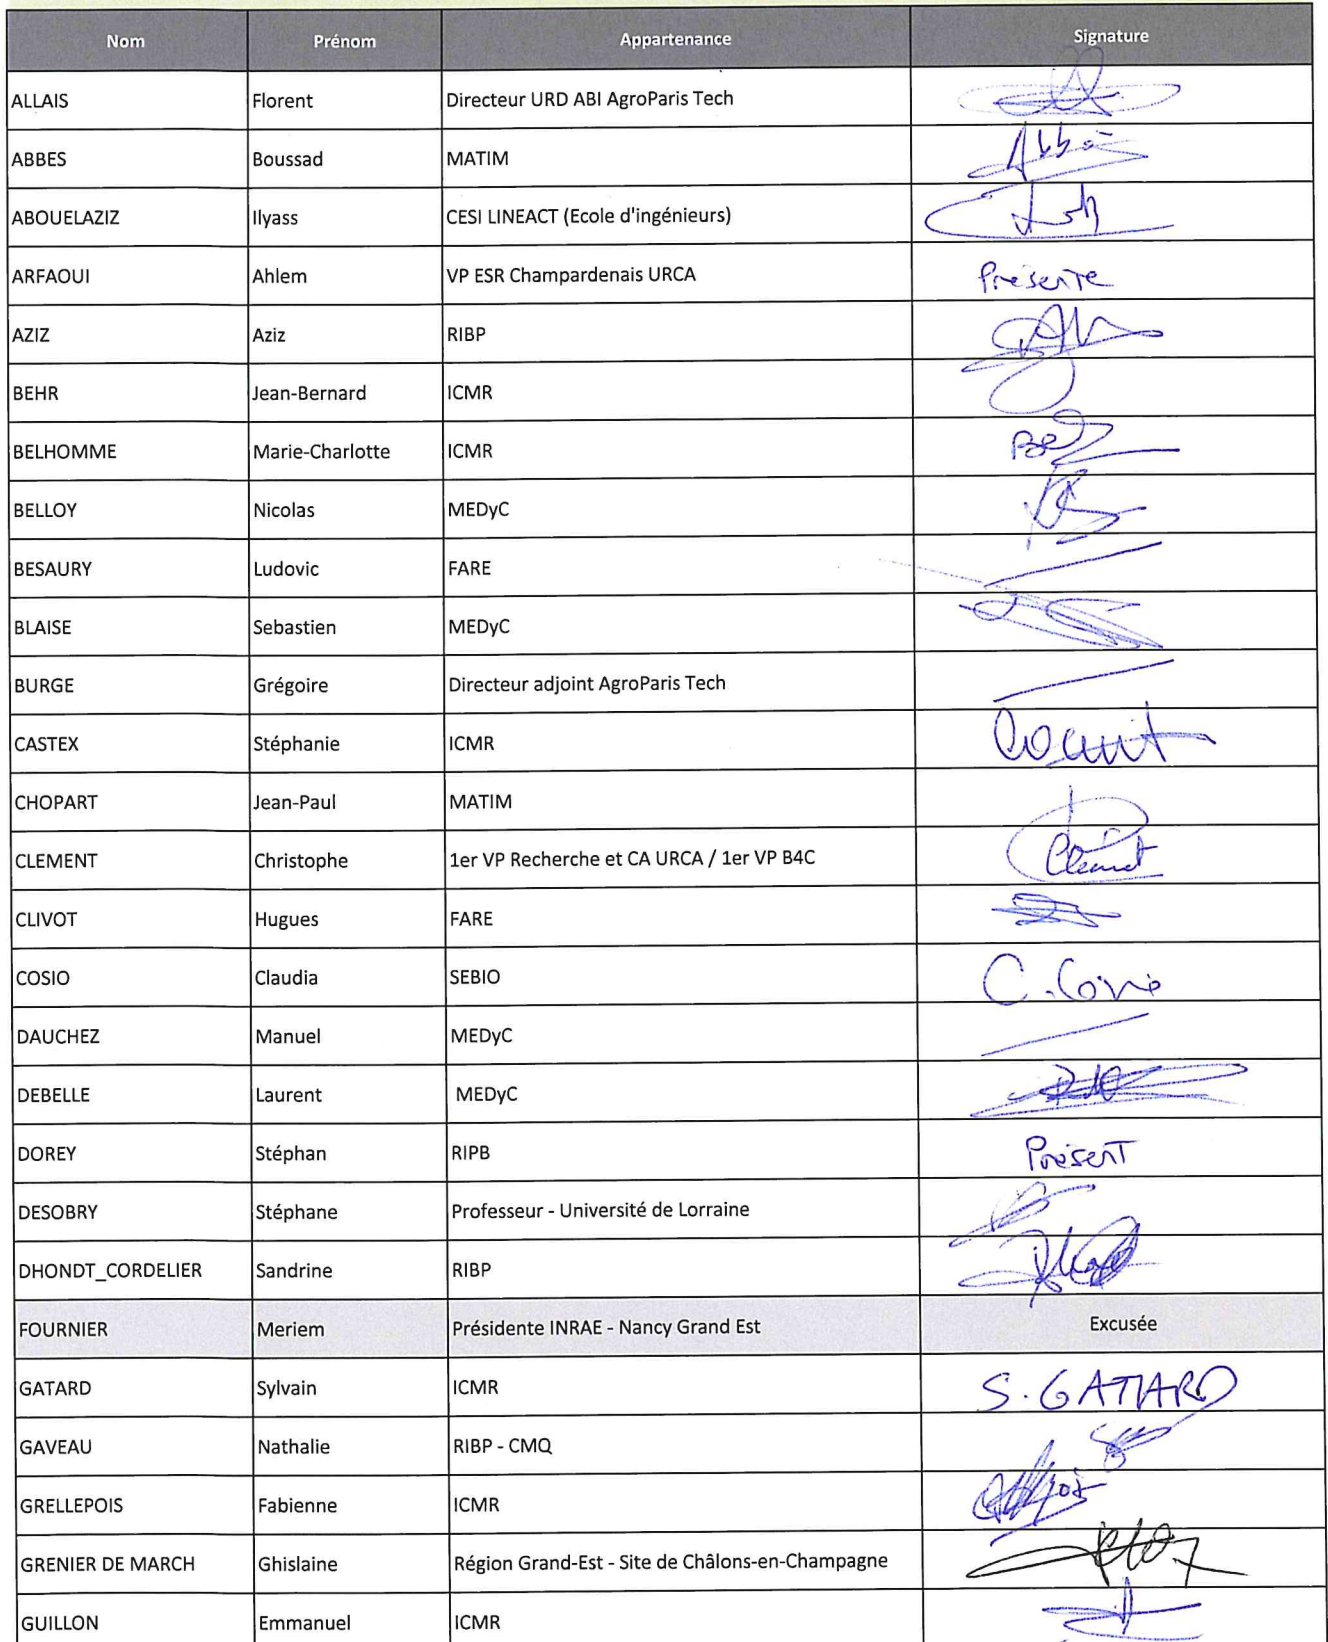 Nom Prénom Appartenance Signature
ALLAIS Florent Directeur URD ABI AgroParis Tech
ABBES Boussad MATIM
ABOUELAZIZ Ilyass CESI LINEACT (Ecole d'ingénieurs)
ARFAOUI Ahlem VP ESR Champardenais URCA Présente
AZIZ Aziz RIBP
BEHR Jean-Bernard ICMR
BELHOMME Marie-Charlotte ICMR
BELLOY Nicolas MEDyC
BESAURY Ludovic FARE
BLAISE Sebastien MEDyC
BURGE Grégoire Directeur adjoint AgroParis Tech
CASTEX Stéphanie ICMR
CHOPART Jean-Paul MATIM
CLEMENT Christophe 1er VP Recherche et CA URCA / 1er VP B4C Clement
CLIVOT Hugues FARE
COSIO Claudia SEBIO C. Cosio
DAUCHEZ Manuel MEDyC
DEBELLE Laurent MEDyC
DOREY Stéphan RIPB Présent
DESOBRY Stéphane Professeur - Université de Lorraine
DHONDT_CORDELIER Sandrine RIBP
FOURNIER Meriem Présidente INRAE - Nancy Grand Est Excusée
GATARD Sylvain ICMR S. GATARD
GAVEAU Nathalie RIBP - CMQ
GRELLEPOIS Fabienne ICMR
GRENIER DE MARCH Ghislaine Région Grand-Est - Site de Châlons-en-Champagne
GUILLON Emmanuel ICMR